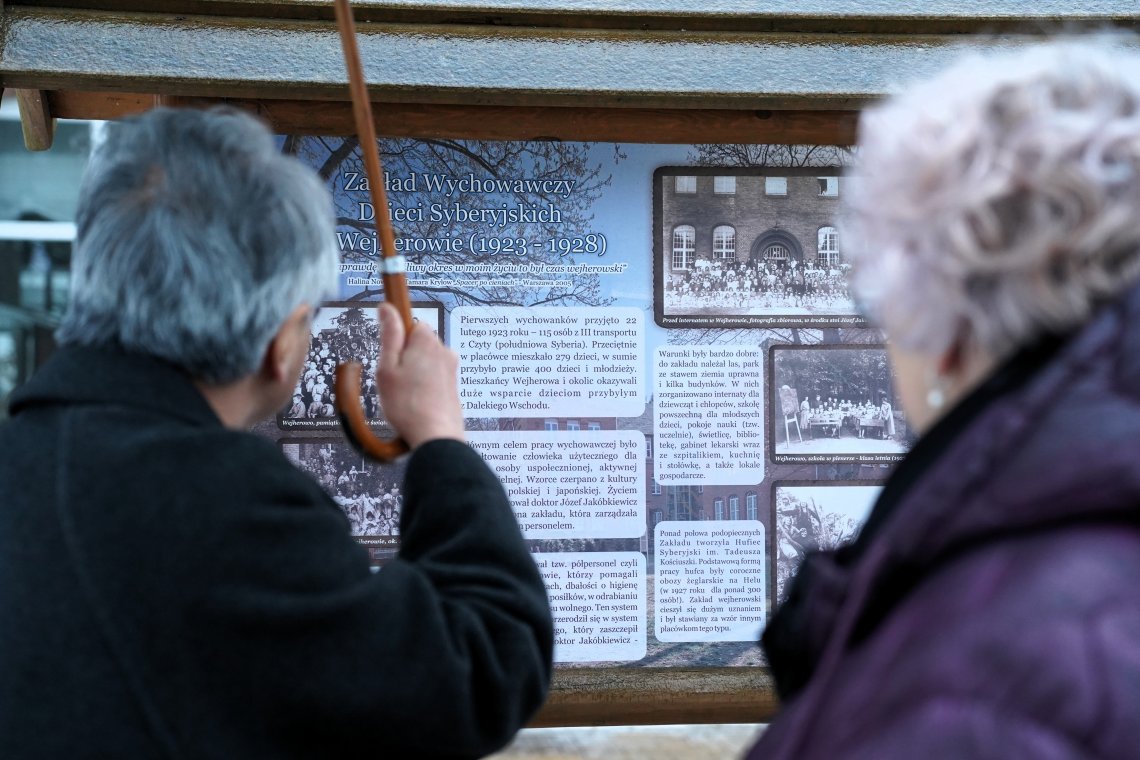 Zakład Wychowawczy
Dzieci Syberyjskich
Wejherowie (1923 - 1928)
okres w moim życiu to był czas wejherowski"
Halina Tamara Kryłow „Spacer po cieniach" - Warszawa 2005
Przed internatem w Wejherowie, fotografia zbiorowa, w środku stoi Józef
Pierwszych wychowanków przyjęto 22
lutego 1923 roku – 115 osób z III transportu
z Czyty (południowa Syberia). Przeciętnie
w placówce mieszkało 279 dzieci, w sumie
przybyło prawie 400 dzieci i młodzieży.
Mieszkańcy Wejherowa i okolic okazywali
duże wsparcie dzieciom przybyłym
z Dalekiego Wschodu.
Wejherowo,
Głównym celem pracy wychowawczej było
człowieka użytecznego dla
osoby uspołecznionej, aktywnej
Wzorce czerpano z kultury
polskiej i japońskiej. Życiem
doktor Józef Jakóbkiewicz
zakładu, która zarządzała
personelem.
tzw. półpersonel czyli
którzy pomagali
dbałości o higienę
posiłków, w odrabianiu
wolnego. Ten system
się w system
który zaszczepił
doktor Jakóbkiewicz -
Warunki były bardzo dobre:
do zakładu należał las, park
ze stawem ziemia uprawna
i kilka budynków. W nich
zorganizowano internaty dla
dziewcząt i chłopców, szkołę
powszechną dla młodszych
dzieci, pokoje nauki (tzw.
uczelnie), świetlicę, biblio-
tekę, gabinet lekarski wraz
ze szpitalikiem, kuchnię
i stołówkę, a także lokale
gospodarcze.
Wejherowo, szkoła w plenerze - klasa letnia
Ponad połowa podopiecznych
Zakładu tworzyła Hufiec
Syberyjski im. Tadeusza
Kościuszki. Podstawową formą
pracy hufca były coroczne
obozy żeglarskie na Helu
(w 1927 roku dla ponad 300
osób!). Zakład wejherowski
cieszył się dużym uznaniem
i był stawiany za wzór innym
placówkom tego typu.